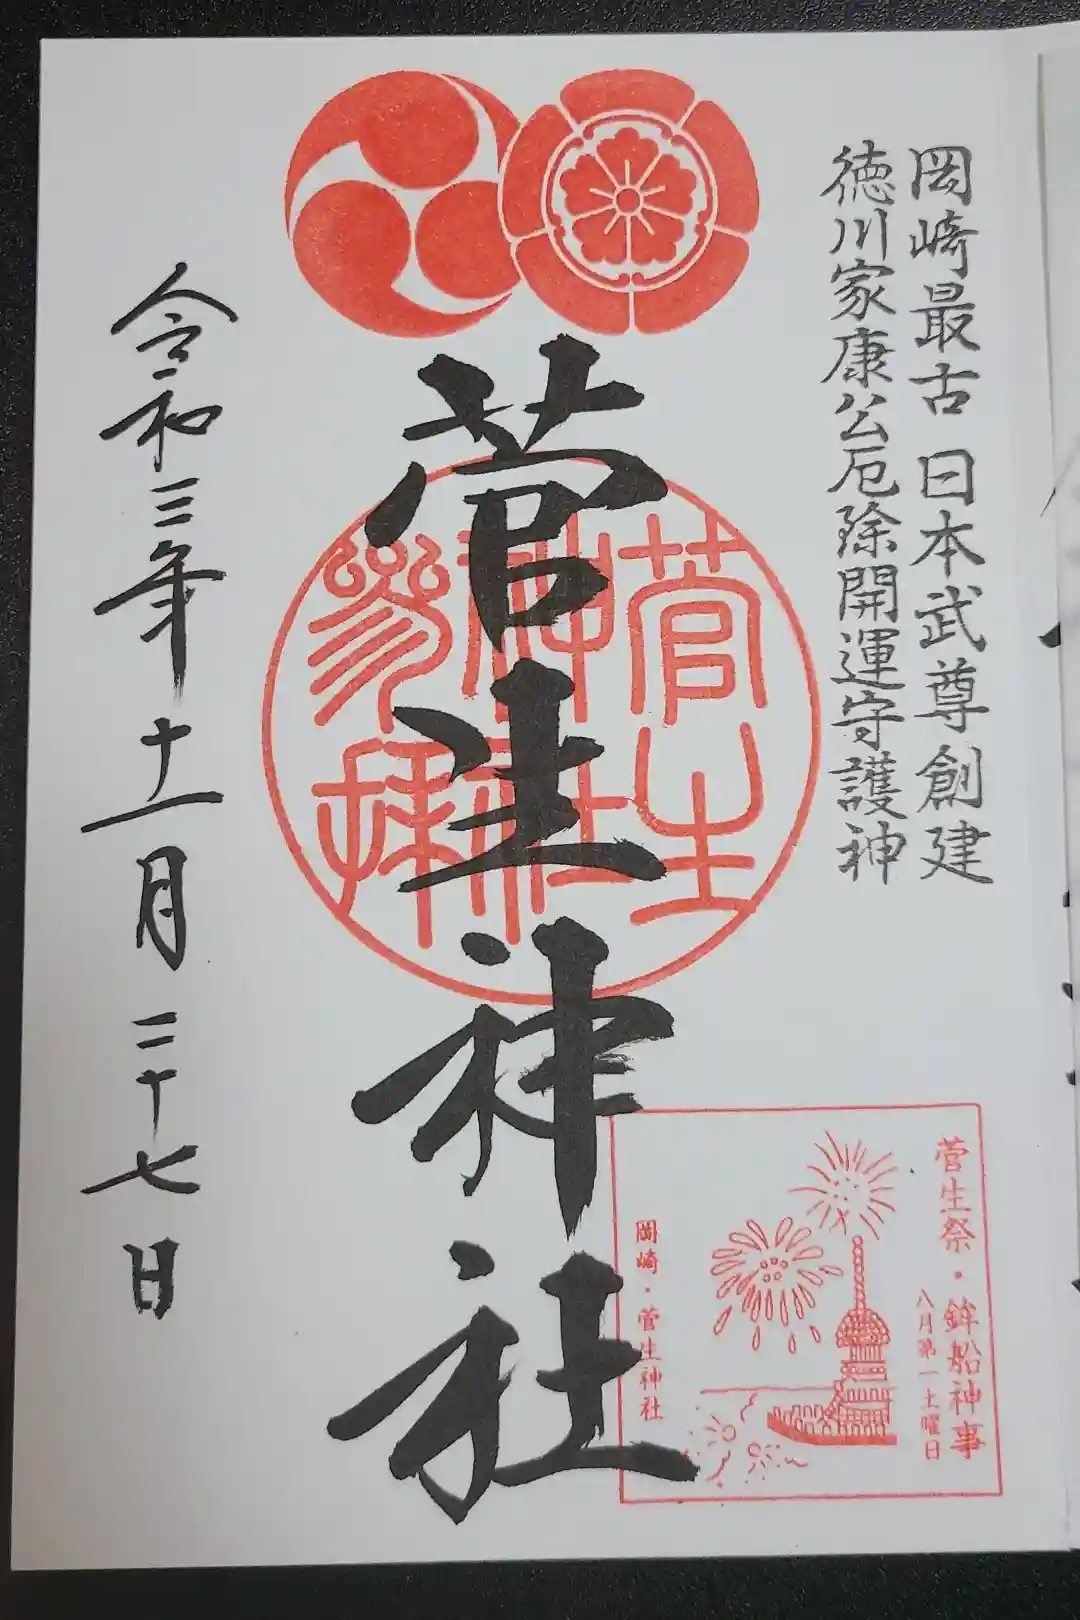 岡崎最古 日本武尊創建
徳川家康公厄除開運守護神
菅生神社
菅生
神社
参拝
菅生祭・鉾船神事
八月第一土曜日
岡崎・菅生神社
令和三年十一月二十七日